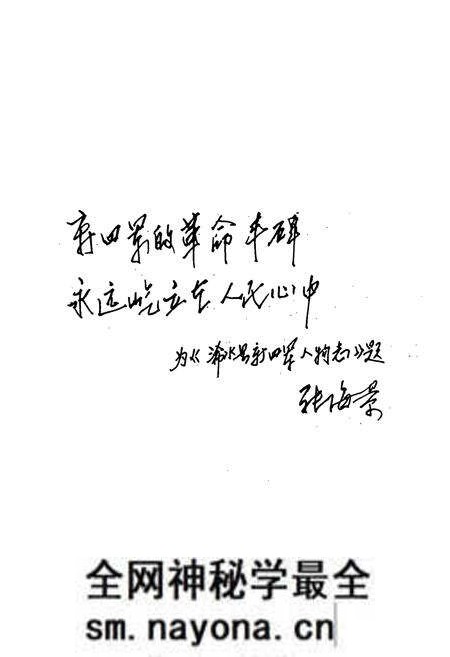 新四军的革命丰碑
永远屹立在人民心中
为《浠水县新四军人物志》题
张海景
全网神秘学最全
sm.nayona.cn